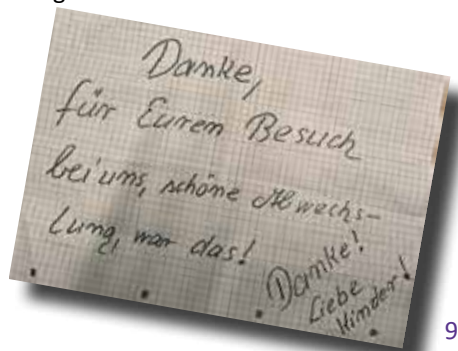 Danke,
für Euren Besuch
bei uns, schöne Abwechs-
lung, war das!
Danke!
Liebe
Kinder!
9